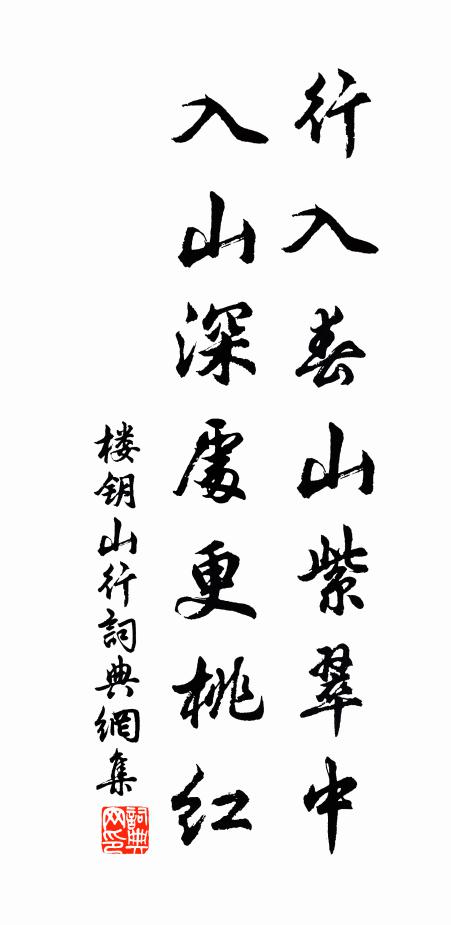 行入春山紫翠中
入山深處更桃红
楼钥山行詞典網集
詞典網印